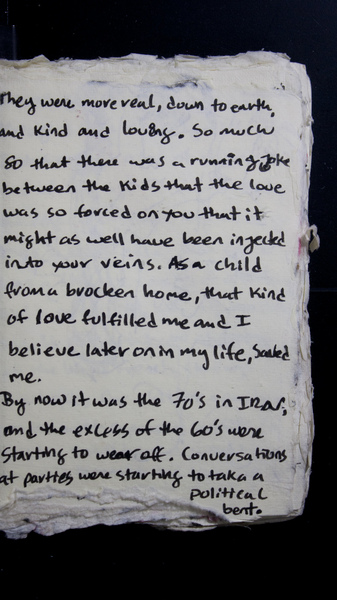 They were more real, down to earth,
and kind and loving. So much
so that there was a running joke
between the kids that the love
was so forced on you that it
might as well have been injected
into your veins. As a child
from a brocken home, that kind
of love fulfilled me and I
believe later on in my life, saved
me.
By now it was the 70's in Iran,
and the excess of the 60's were
starting to wear off. Conversations
at parties were starting to take a
political
bent.